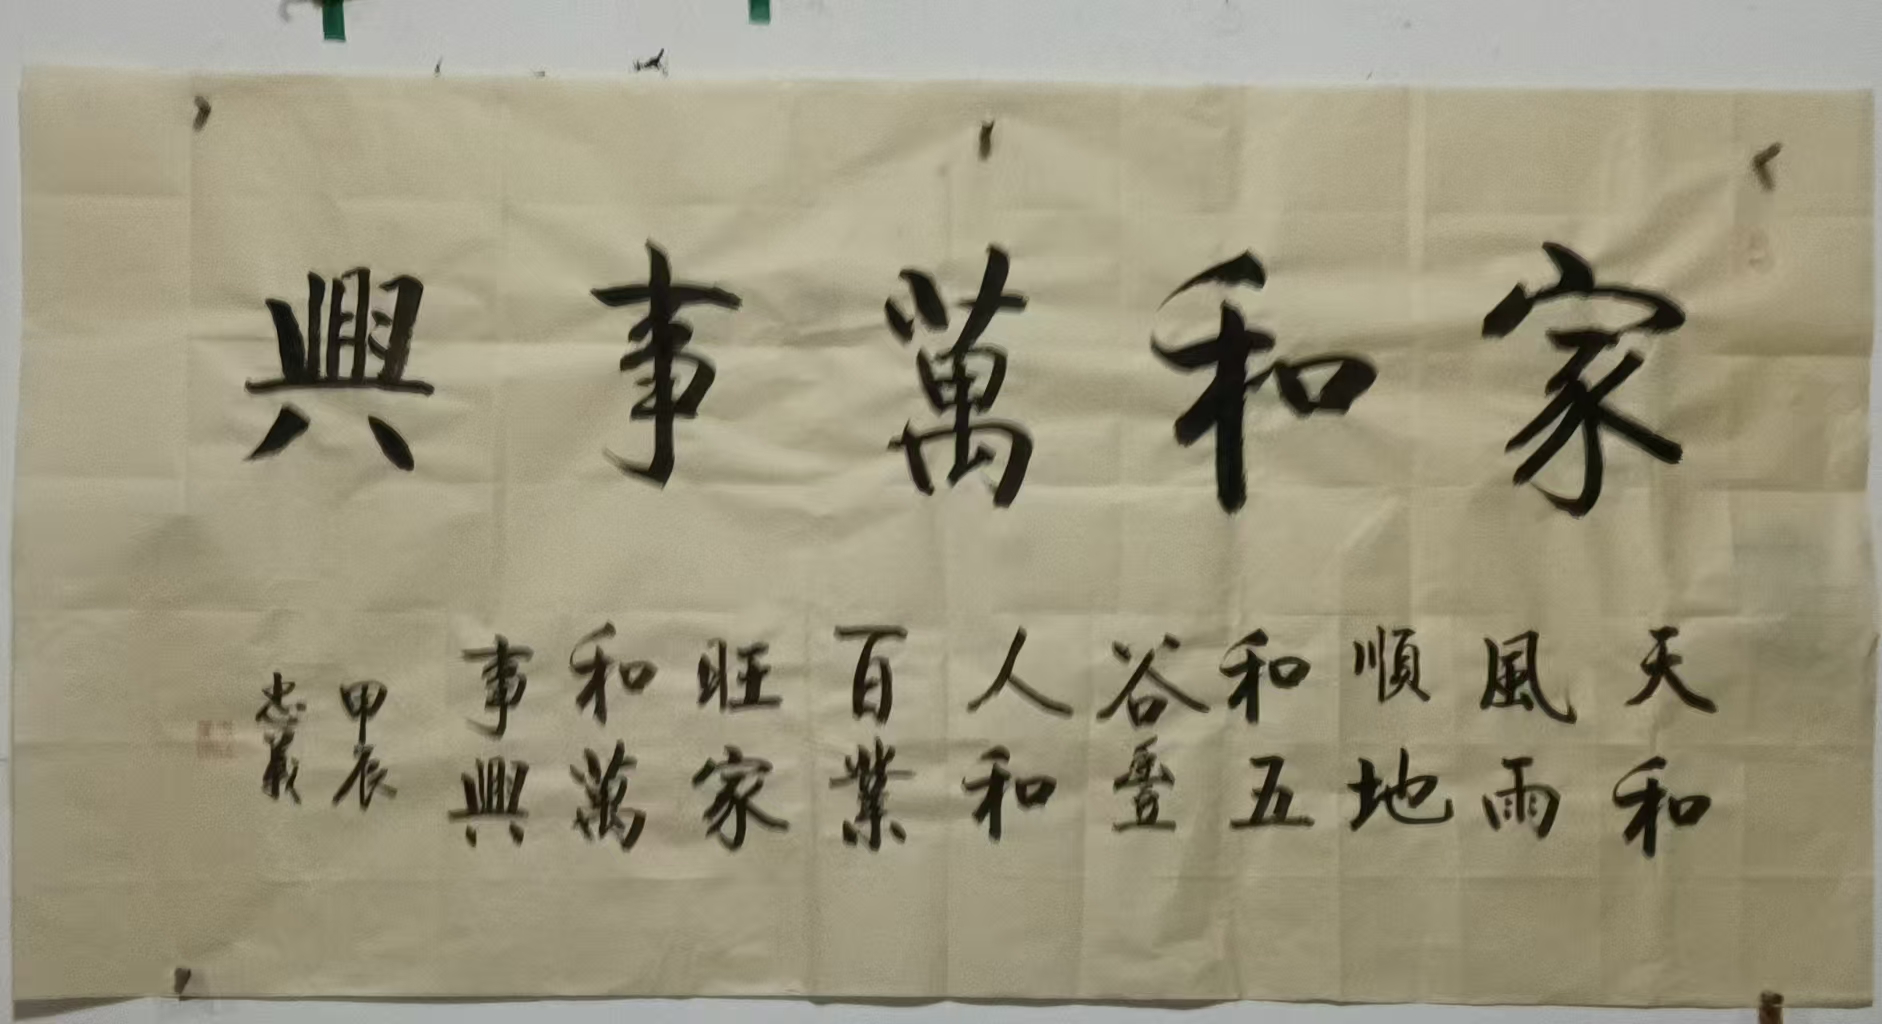 家和萬事興
天和
風雨
順地
和五
谷豐
人和
百業
旺家
和萬
事興
甲辰
忠義